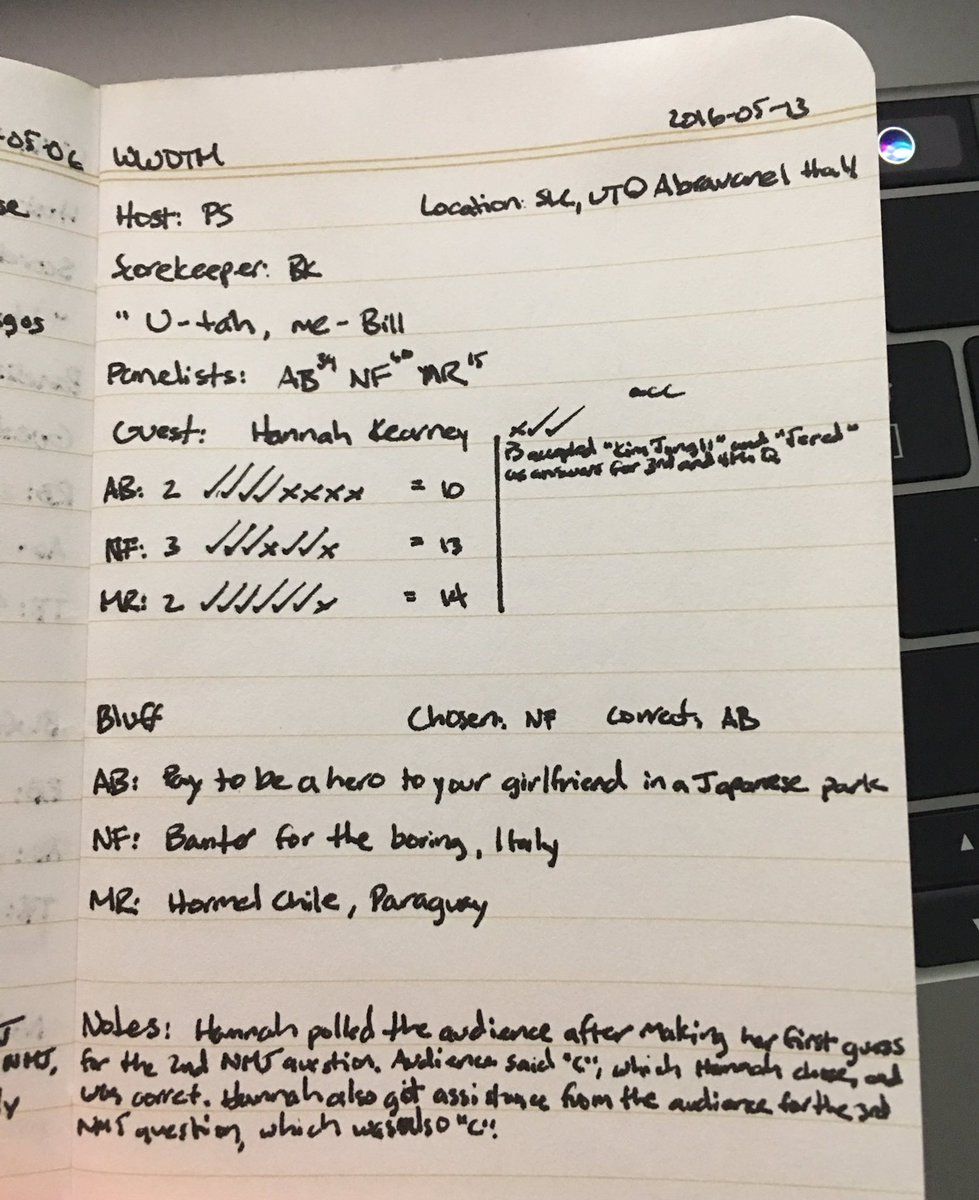 -05-06
se
" sgos
NMJ,
ly
WWDTM 2016-05-13
Host: PS Location: SLC, UT @ Abravanel Hall
Scorekeeper: BK
" U-tah, me-Bill
Panelists: AB³⁴ NF⁶⁰ MR¹⁵
Guest: Hannah Kearney x✓✓ acc
PS accepted "Kim Jong Il" and "Jered"
as answers for 3rd and 4th Q
AB: 2 ✓✓✓✓xxxx = 10
NF: 3 ✓✓✓x✓✓x = 13
MR: 2 ✓✓✓✓✓✓x = 14
Bluff Chosen: NF Correct: AB
AB: Pay to be a hero to your girlfriend in a Japanese park
NF: Banter for the boring, Italy
MR: Hormel Chile, Paraguay
Notes: Hannah polled the audience after making her first guess
for the 2nd NMJ question. Audience said "C", which Hannah chose, and
was corret. Hannah also got assistance from the audience for the 3rd
NMJ question, which was also "C".